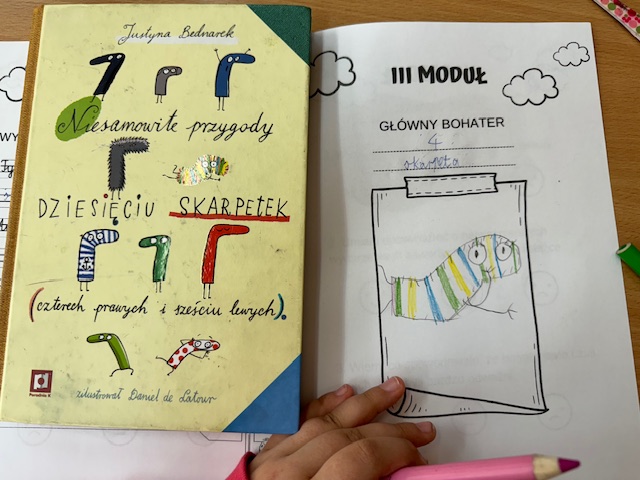 Justyna Bednarek
Niesamowite przygody
DZIESIĘCIU SKARPETEK
(czterech prawych i sześciu lewych).
zilustrował Daniel de Latour
Poradnia K
III MODUŁ
GŁÓWNY BOHATER
4
skarpeta